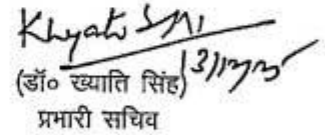 Khyati
(डॉ० ख्याति सिंह)
प्रभारी सचिव